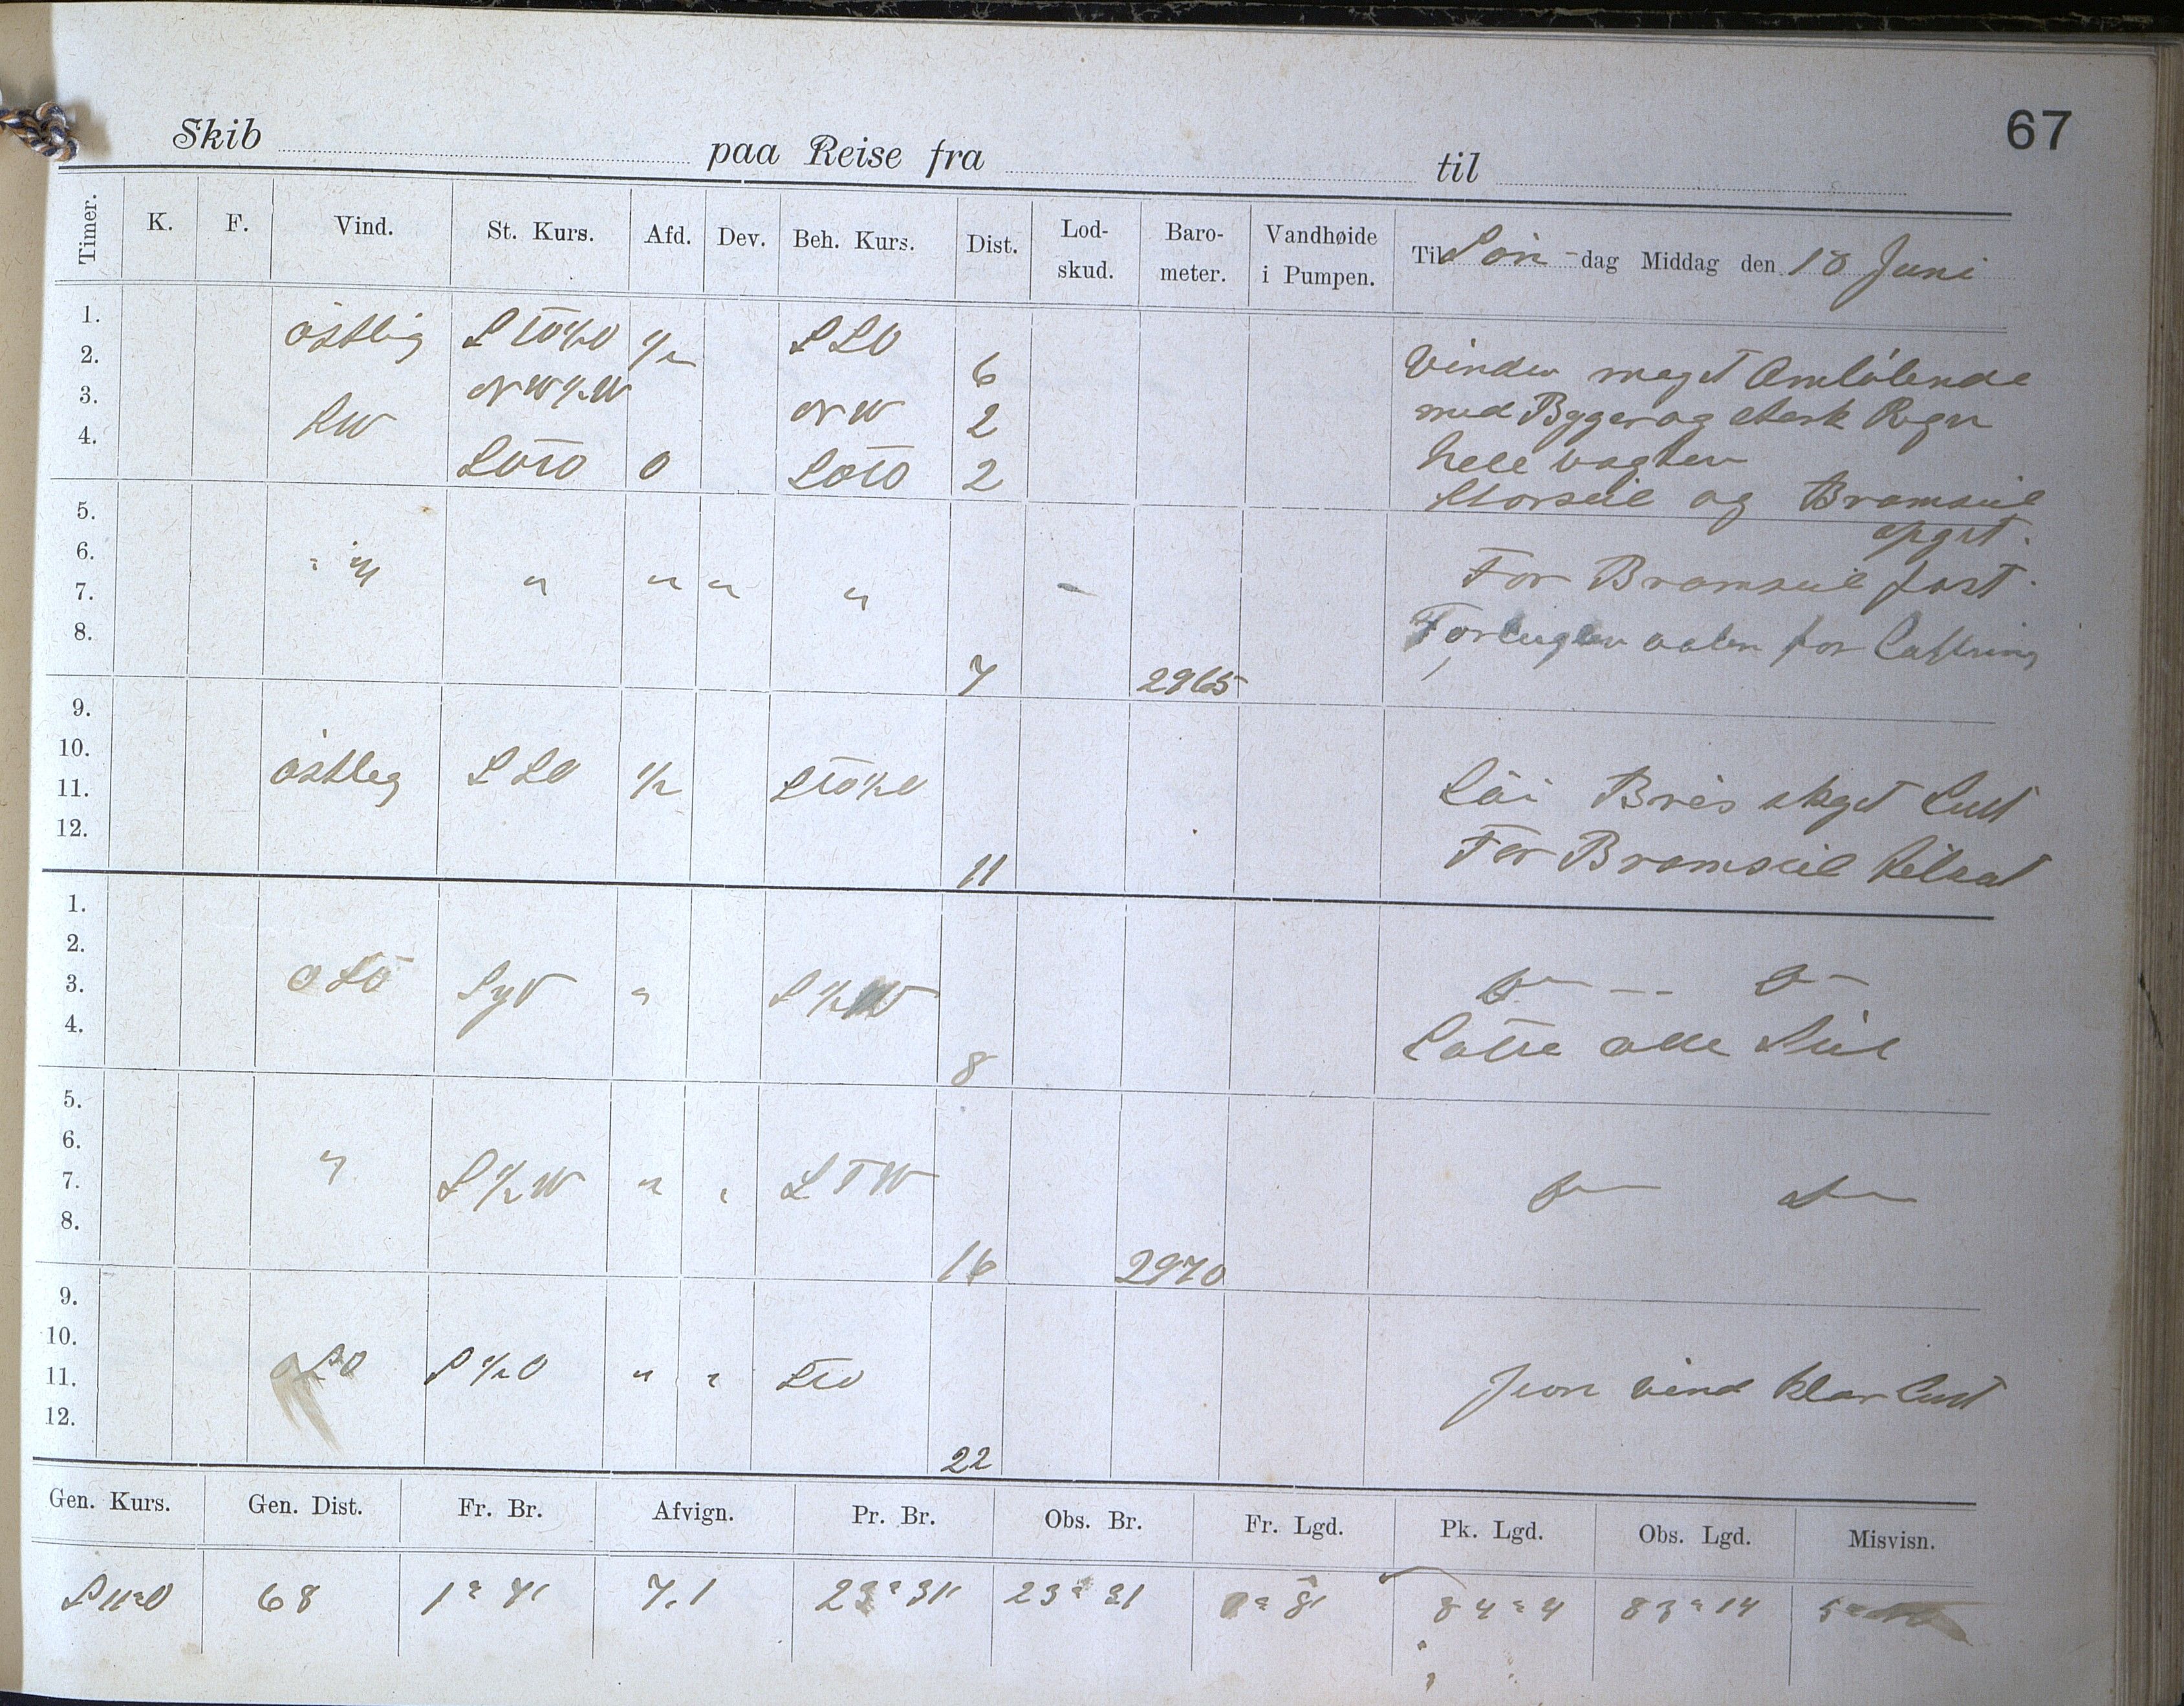 67
Skib paa Reise fra til
Timer. K. F. Vind. St. Kurs. Afd. Dev. Beh. Kurs. Dist. Lod-skud. Baro-meter. Vandhøide i Pumpen. Til Søn-dag Middag den 18 Juni
1. östlig StO½O ½ SSO
2. 6 Vinden meget Omlöbende
3. NW½W NW 2 med Byger og sterk Regn
4. SW SOtO 0 SOtO 2 hele vagten
Storseil og Bramseil
5. opgit.
6. " " " " " For Bramseil fast.
7.
8. 7 2965 for
9.
10. östleg SSO ½ StO½O
11. Löi Bris skyet Luft
12. 11 For Bramseil tilsat
1.
2.
3. OSO Syd " S½W
4. 8 alle Seil
5.
6. "
7. S½W " " StW
8. 16 2970
9.
10.
11. OSO S½O " " StO Jevn vind klar Luft
12. 22
Gen. Kurs. Gen. Dist. Fr. Br. Afvign. Pr. Br. Obs. Br. Fr. Lgd. Pk. Lgd. Obs. Lgd. Misvisn.
S11°O 68 1° 7' 7,1 23° 31' 23° 31 0° 8' 84° 4 83° 14